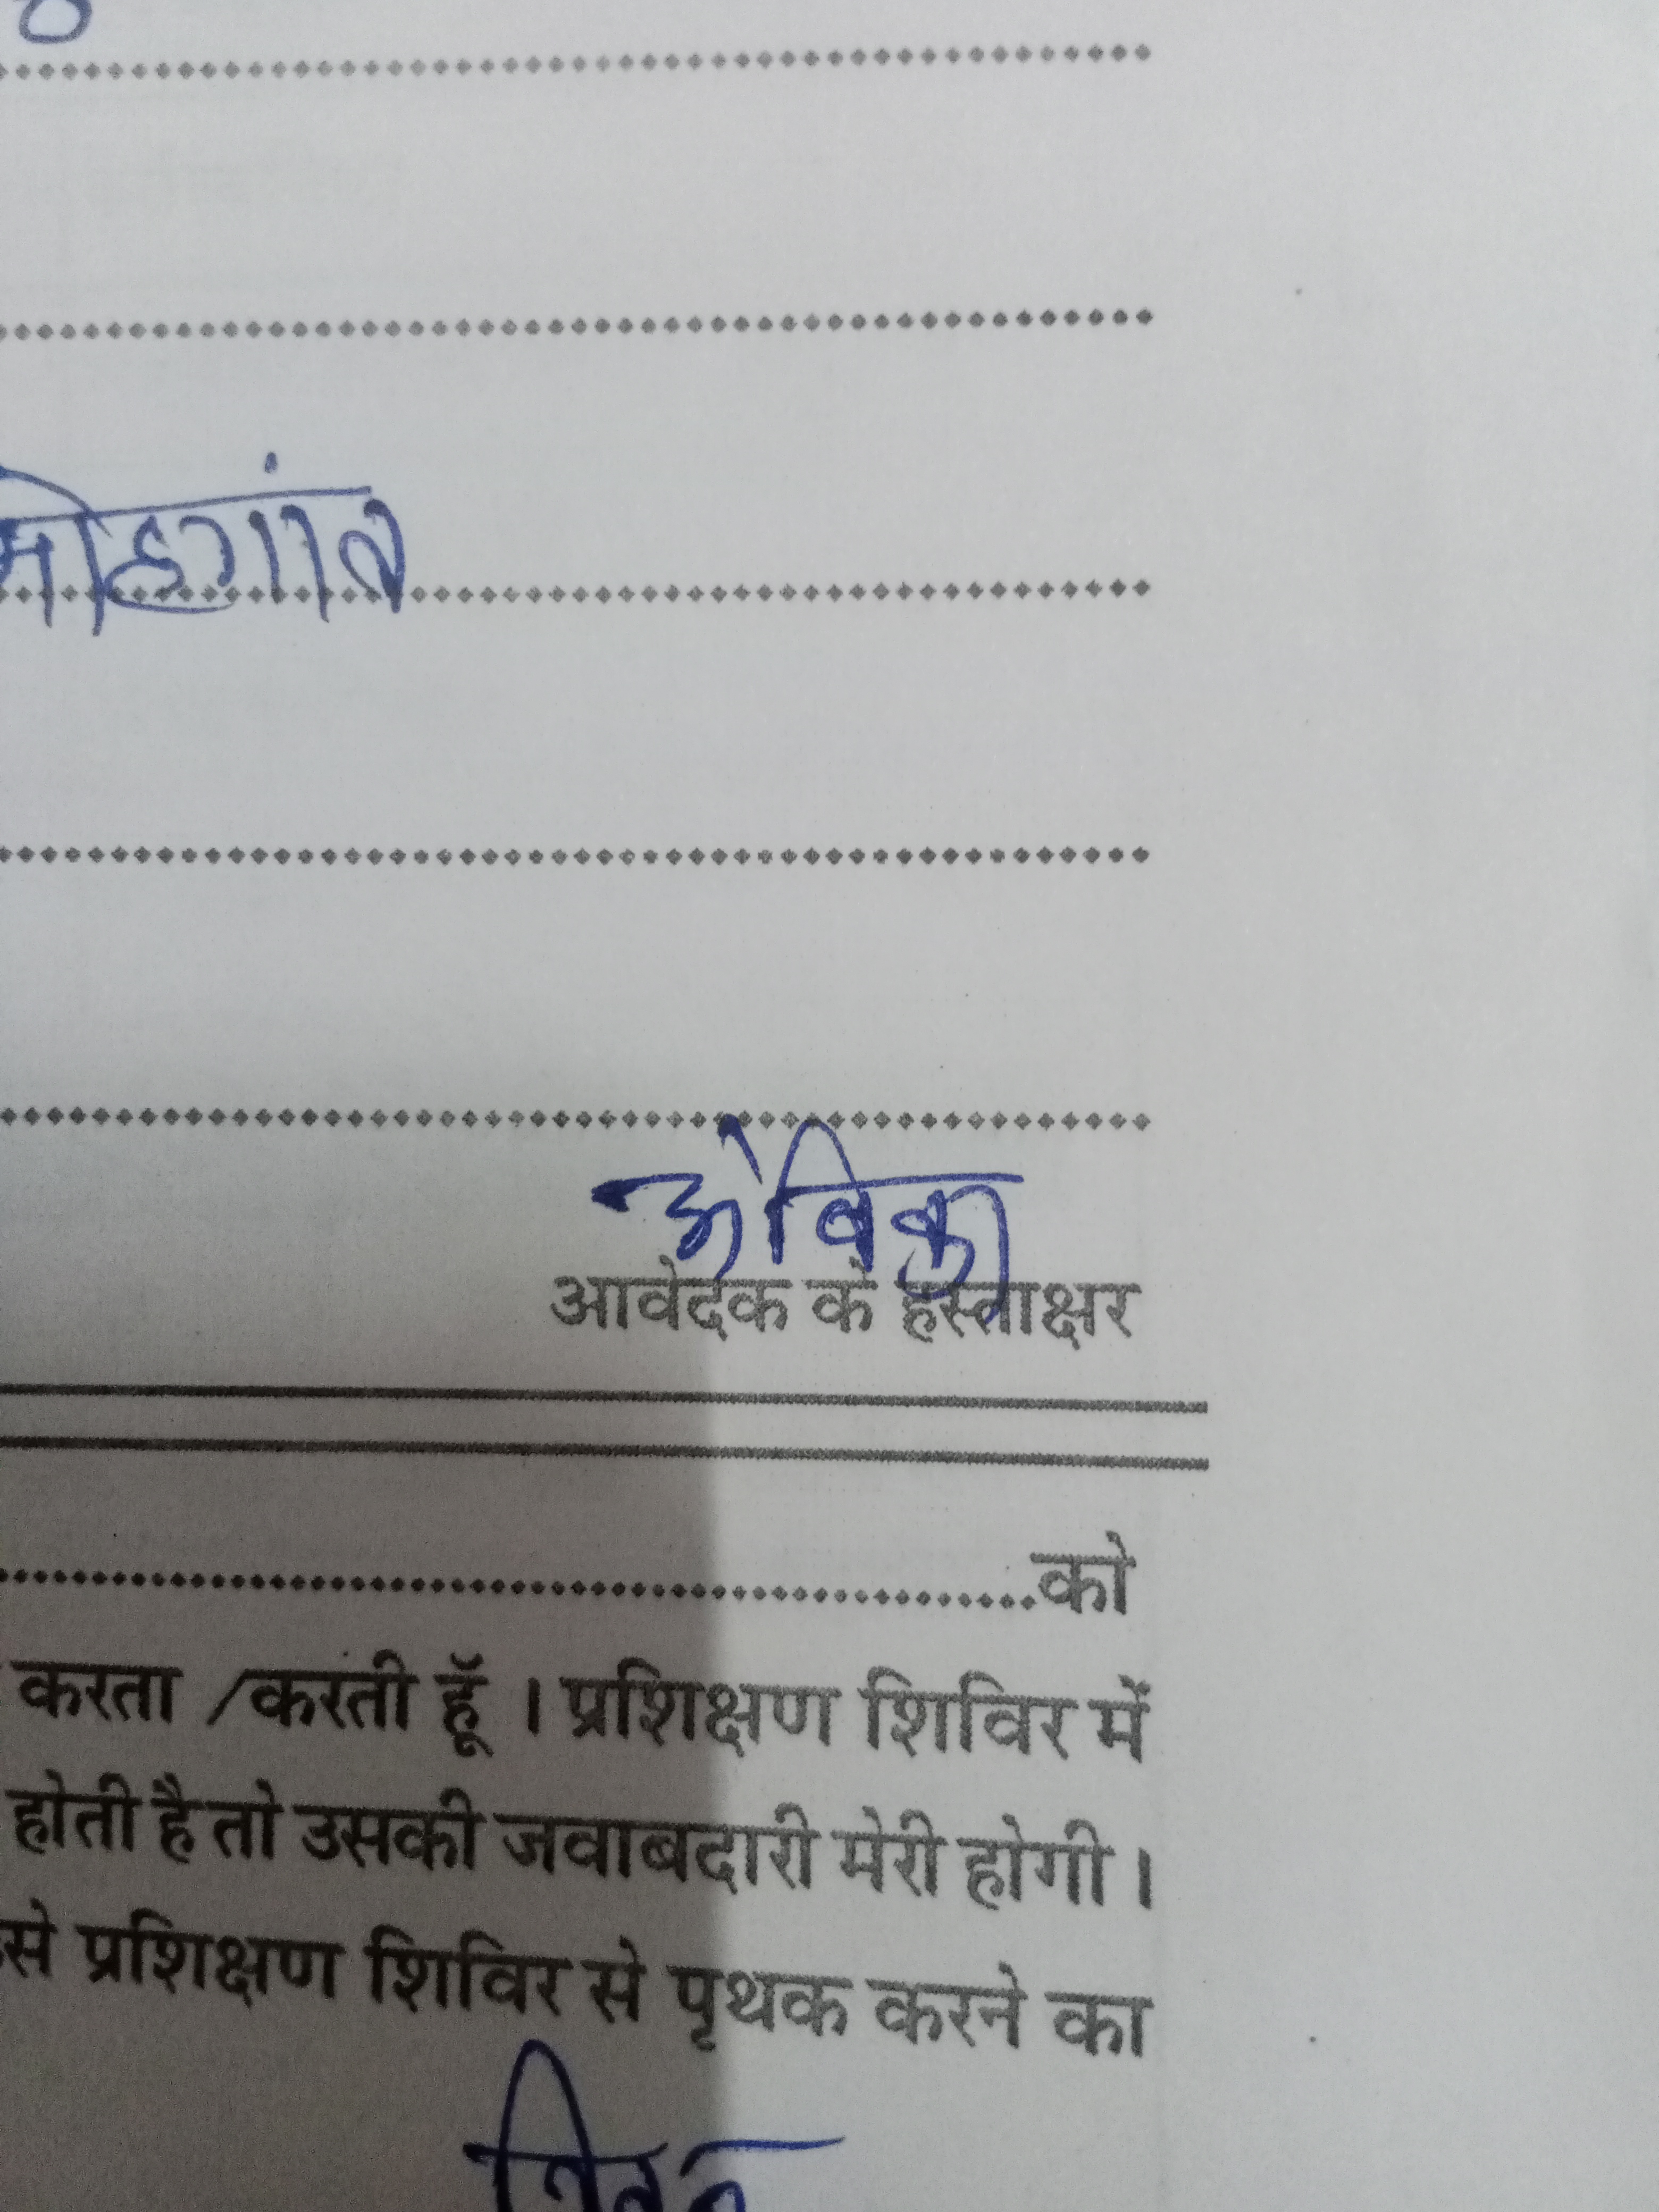 मोहगांव
आवेदक के हस्ताक्षर
को
करता / करती हूॅ । प्रशिक्षण शिविर में
होती है तो उसकी जवाबदारी मेरी होगी ।
से प्रशिक्षण शिविर से पृथक करने का